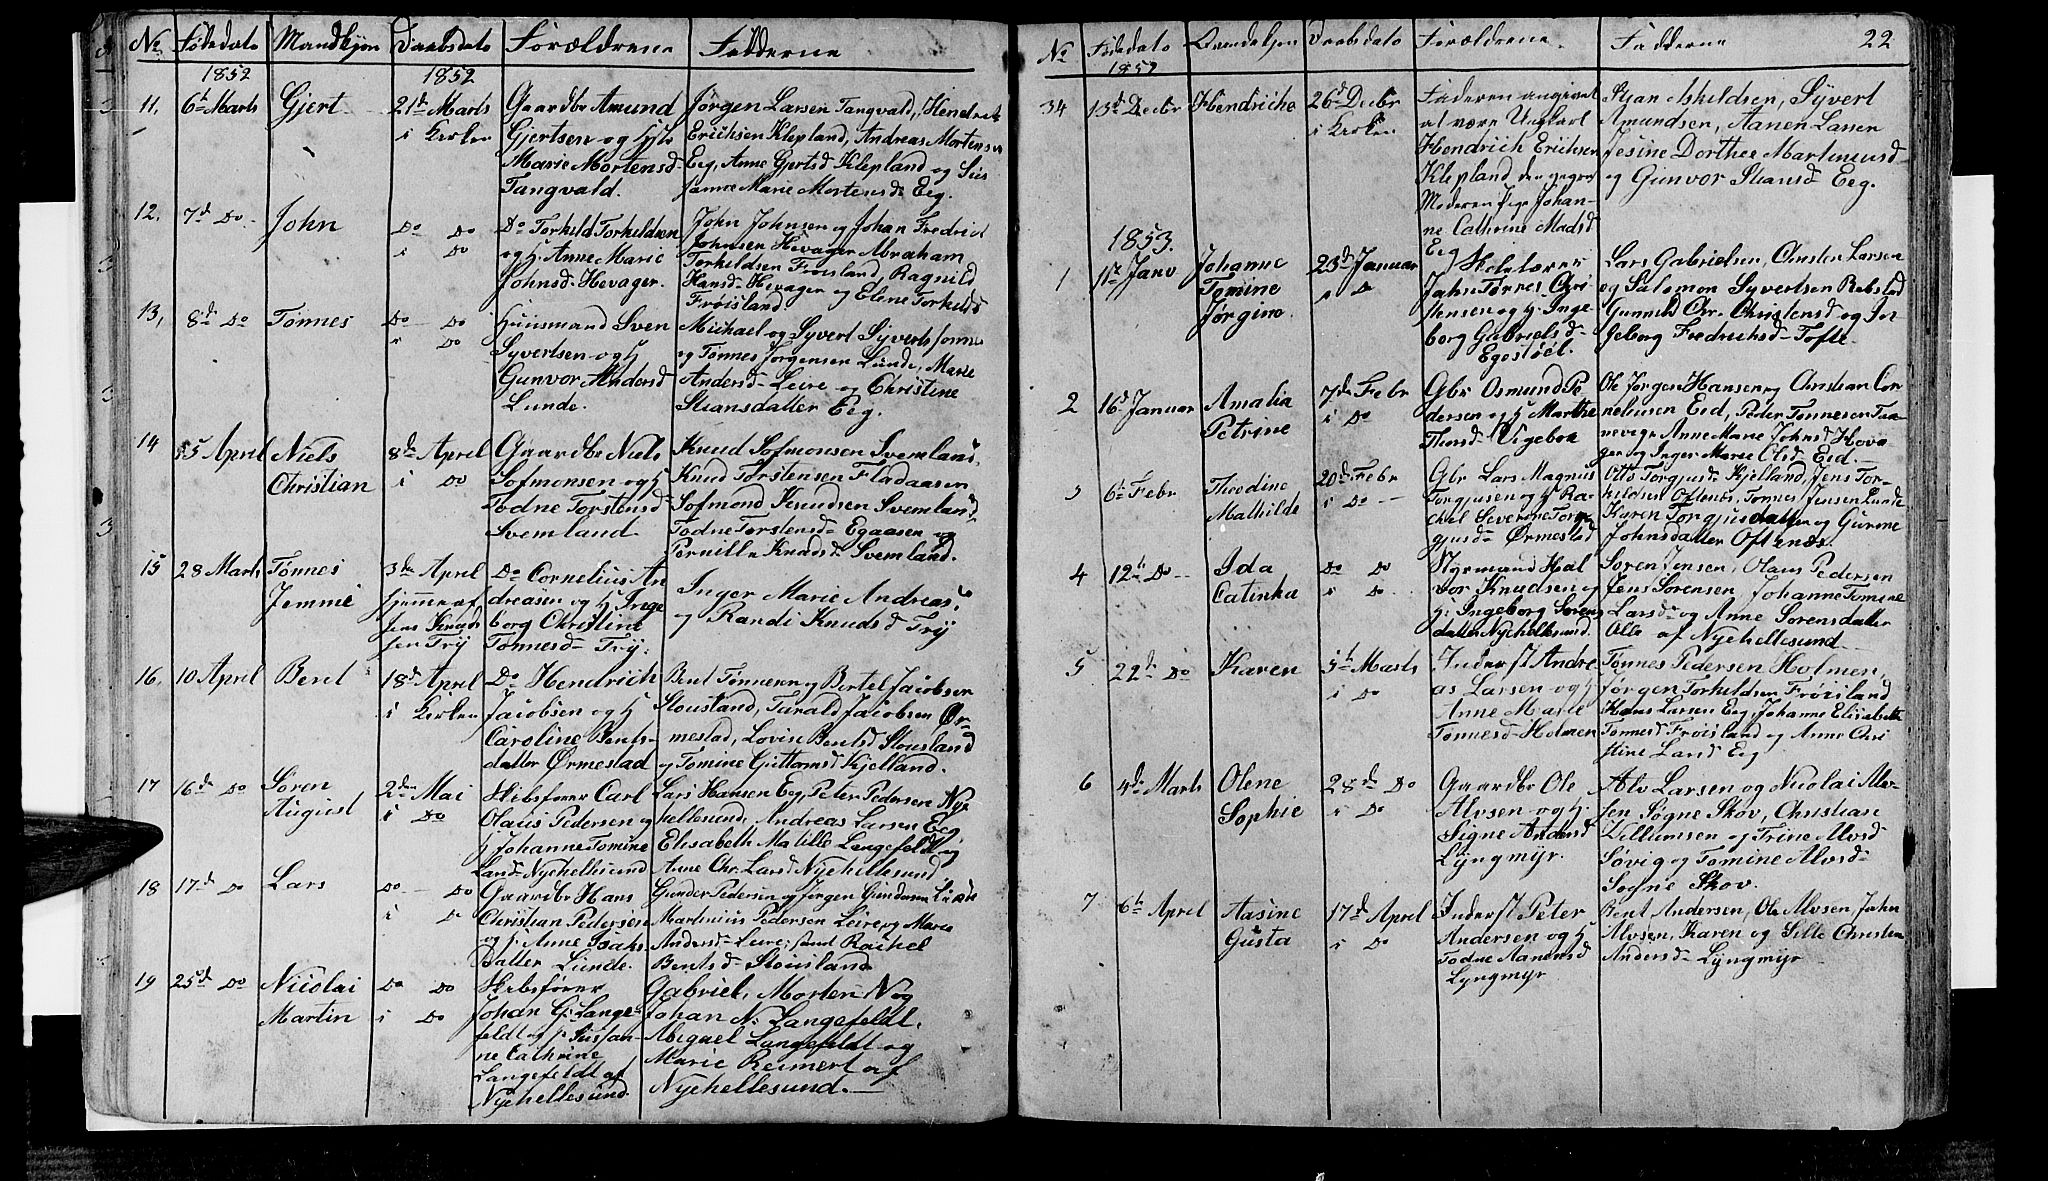 No Fødedato Mandkjøn Daabsdato Forældrene Fadderne
1852 1852
11. 6te Marts Gjert 21de Marts i Kirken
Gaardbr Amund
Gjertsen og Hstr
Marie Mortensd
Tangvald.
Jørgen Larsen Tangvald, Hendrik
Erichsen Klepland, Andreas Mortensen
Eeg, Anne Gjertsd Klepland og Sus
sanne Marie Mortensd Eeg.
12. 7de Do John Do Do i Do
Do Torkild Torkildsen
og H. Anne Marie
Johnsd Hevager.
John Johnsen og Johan Fredrick
Johnsen Hevager Abraham
Torkildsen Frøisland, Ragnild
Hansd Hevager og Elene Torkildsd
Frøisland.
13, 8de Do Tønnes Do Do i Do
Huusmand Sven
Syvertsen og H
Gunvor Andersd
Lunde.
Michael og Syvert Syvertssønne
og Tønnes Jørgensen Lunde, Marie
Andersd Leire og Christine
Stiansdatter Eeg.
14 5 April Niels Christian 8de April i Do
Gaardbr Niels
Sofmonsen og H
Todne Torstensd
Svemland
Knud Sofmonsen Svemland,
Knud Torstensen Fladaasen
Sofmond Knudsen Svemland,
Todne Torstensd Egaasen og
Pernille Knudsd Svemland.
15 28 Marts Tønnes Jemmie 3die April
hjemme af
Jens Knud
sen Try
Do Cornelius An
dreasen og H Inge
borg Christine
Tønnesd Try.
Inger Marie Andreasd
og Randi Knudsd Try
16. 10 April Bent 18de April i Kirken
Do Hendrich
Jacobsen og H
Caroline Bents-
datter Ørmestad
Bent Tønnesen og Bertel Jacobsen
Stousland, Tarald Jacobsen Ør-
mestad, Lovise Bentsd Stousland
og Tomine Guttormsd Kjelland.
17 16de Do Søren August 2den Mai i Do
Skibsfører Carl
Olaus Pedersen og
H Johanne Tomine
Larsd Nychellesund
Lars Hansen Eeg, Peter Pedersen Nye
hellesund, Andreas Larsen Eeg
Elisabeth Matille Langefeldt og
Anne Chr. Larsd Nychellesund
18 17de Do Lars Do Do i Do
Gaardbr Hans
Christian Pedersen
og H. Anne Isaks
Datter Lunde.
Gunder Pedersen og Jørgen Gundersen Lunde
Martinius Pedersen Leire og Marie
Andersd Leire, samt Rachel
Bentsd Stousland
19 25de Do Nicolai Martin Do Do i Do
Skibsfører
Johan G. Lange-
feldt og H Sussan
ne Cathrine
Langefeldt af
Nychellesund.
Gabriel, Morten N og
Johan N. Langefeldt,
Abiguel Langefeldt og
Marie Reimert af
Nychellesund.
No Fødedato Qvindekjøn Daabsdato Forældrene Fadderne 22
1852
34 13de Decbr Hendriche 26de Decbr i Kirken
Faderen angivet
at være Ungkarl
Hendrich Erichsen
Klepland den yngre
Moderen Pige Johan-
ne Cathrine Madsd
Eeg
Stian Askildsen, Syvert
Amundsen, Aanen Larsen
Jesine Dorthea Martinusd
og Gunvor Stiansd Eeg.
1853.
1 11te Janv Johanne Tomine Jørgine. 23de Januar i Do
Skolelærer
Jahn Tørnes Chri
stensen og H. Inge
borg Gabrielsd
Egestøel.
Lars Gabrielsen, Christen Larsen
og Salomon Syvertsen Robstad
Gunnild Chr. Christensd og In
geborg Fredrichsd Tofte.
2 16de Januar Amalia Petrine 7de Febr i Do
Gbr Osmund Pe
dersen og H Marthe
Thorsd Vigebon
Ole Jørgen Hansen og Christian Cor
neliusen Eid, Peder Tønnesen Taa
nevig, Anne Marie Johnsd Hova
ger og Inger Marie Olsd Eid
3 6te Febr Theodine Mathilde 20de Febr i Do
Gbr Lars Magnus
Torgjusen og H Ra-
chel Severine Torg
gjusd Ørmestad
Otto Torgjusd Kjelland, Jens Tor-
kildsen Oftenes, Tønnes Jensen Lunde
Karen Torgjusdatter og Gurine
Johnsdatter Oftenæs.
4 12te Do Ida Catinka Do Do i Do
Styrmand Hal
vor Knudsen og
H. Ingeborg Sørens
datter Nychellesund.
Søren Jensen, Olaus Pedersen
Jens Sørensen, Johanne Tomine
Larsd og Anne Sørensdatter
Alle af Nychellesund
5 22de Do Karen 5te Marts i Do
Inderst Andre
as Larsen og H
Anne Marie
Tønnesd Holmen
Tønnes Pedersen Holmen,
Jørgen Torkildsen Frøisland
Hans Larsen Eeg, Johanne Elisabeth
Tønnesd Frøisland og Anne Chri
stine Larsd Eeg
6 4de Marts Olene Sophie 28de Do i Do
Gaardbr Ole
Alvsen og H.
Signe Andersd
Lyngmyr.
Alv Larsen og Nicolai Alv-
sen Søgne Skov, Christian
Villumsen og Trine Alvsd
Søvig og Tomine Alvsd
Sogne Skov.
7 6te April Aasine Gusta 17de April i Do
Inderst Peter
Andersen og H
Todne Aanensd
Lyngmyr
Bent Andersen, Ole Alvsen, Jahn
Alvsen, Karen og Sille Christine
Andersd Lyngmyr